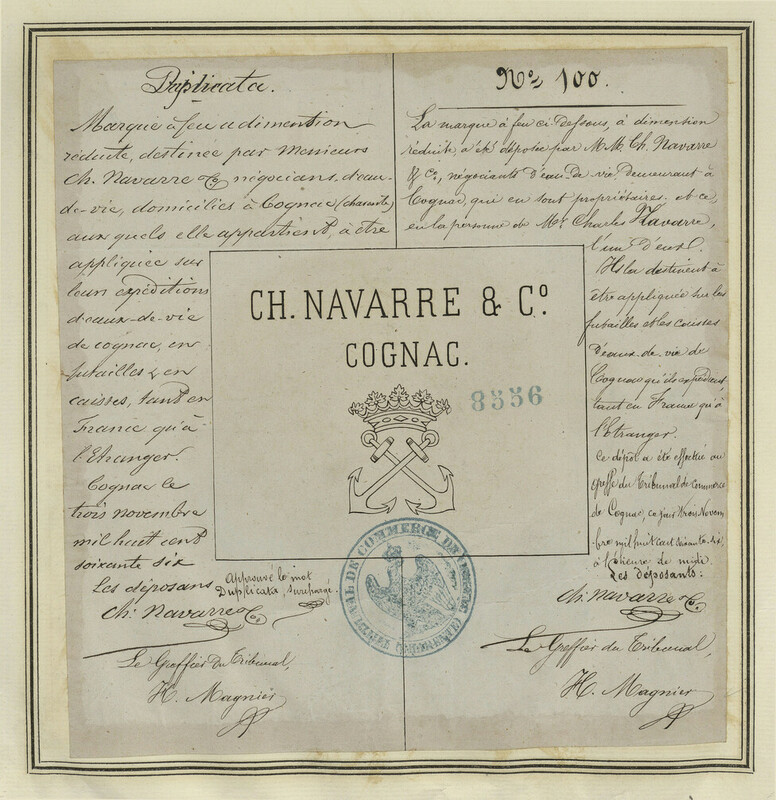 Duplicata.
Marque à feu a dimention
réduite, destinée par Messieurs
Ch. Navarre & Co, négocians, d'eau-
de-vie, domiciliés à Cognac (charente)
aux quels elle appartient, à être
appliquée sur
leurs expéditions
d'eaux-de-vie
de cognac, en
futailles & en
caisses, tant en
France qu'à
l'Etranger.
Cognac le
trois novembre
mil huit cent
soixante six
Les déposans
Ch. Navarre & Co
Approuvé le mot
Duplicata, surchargé.
Le Greffier du Tribunal,
H. Magnier
No 100.
La marque à feu ci-dessous, à dimention
réduite, a été déposée par M.M. Ch. Navarre
& Co, négociants d'eau-de-vie demeurant à
Cognac, qui en sont propriétaires, et ce,
en la personne de Mr Charles Navarre,
l'un d'eux.
Ils la destinent à
être appliquée sur les
futailles et les caisses
d'eaux-de-vie de
Cognac qu'ils expédient
tant en France qu'à
l'Etranger.
Ce dépôt a été effectué au
greffe du Tribunal de Commerce
de Cognac, ce jour trois Novem
bre mil huit cent soixante-six
à l'heure de midi.
Les déposants:
Ch. Navarre & Co
Le Greffier du Tribunal,
H. Magnier
CH. NAVARRE & Co.
COGNAC.
8556
TRIBUNAL DE COMMERCE DE
(CHARENTE)